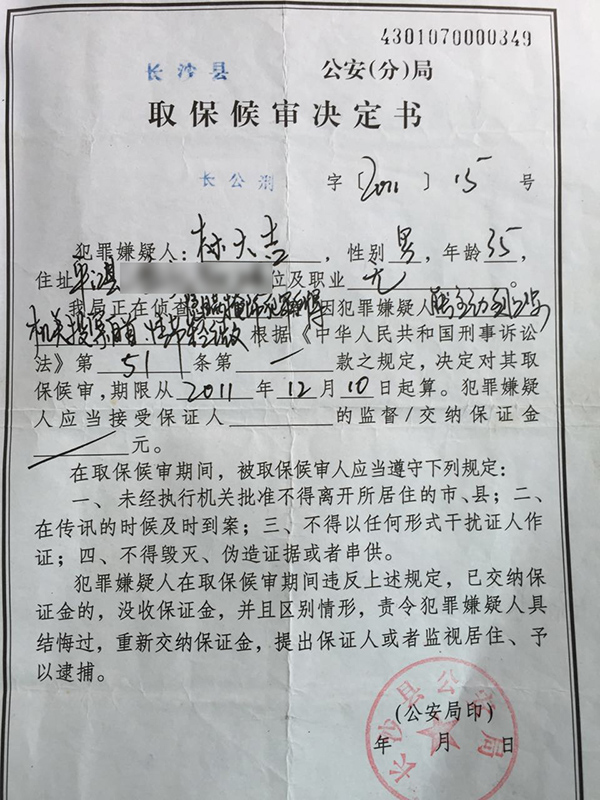 4301070000349
长沙县 公安(分)局
取保候审决定书
长公刑 字〔2011〕15号
犯罪嫌疑人:林大吉,性别男,年龄35,
住址 位及职业无。
我局正在侦查 因犯罪嫌疑人能主动到公安
机关投案自首,情节 根据《中华人民共和国刑事诉讼
法》第51条第一款之规定,决定对其取
保候审,期限从2011年12月10日起算。犯罪嫌疑
人应当接受保证人 的监督/交纳保证金
元。
在取保候审期间,被取保候审人应当遵守下列规定:
一、未经执行机关批准不得离开所居住的市、县;二、
在传讯的时候及时到案;三、不得以任何形式干扰证人作
证;四、不得毁灭、伪造证据或者串供。
犯罪嫌疑人在取保候审期间违反上述规定,已交纳保
证金的,没收保证金,并且区别情形,责令犯罪嫌疑人具
结悔过,重新交纳保证金,提出保证人或者监视居住、予
以逮捕。
长沙县公安局
(公安局印)
年 月 日